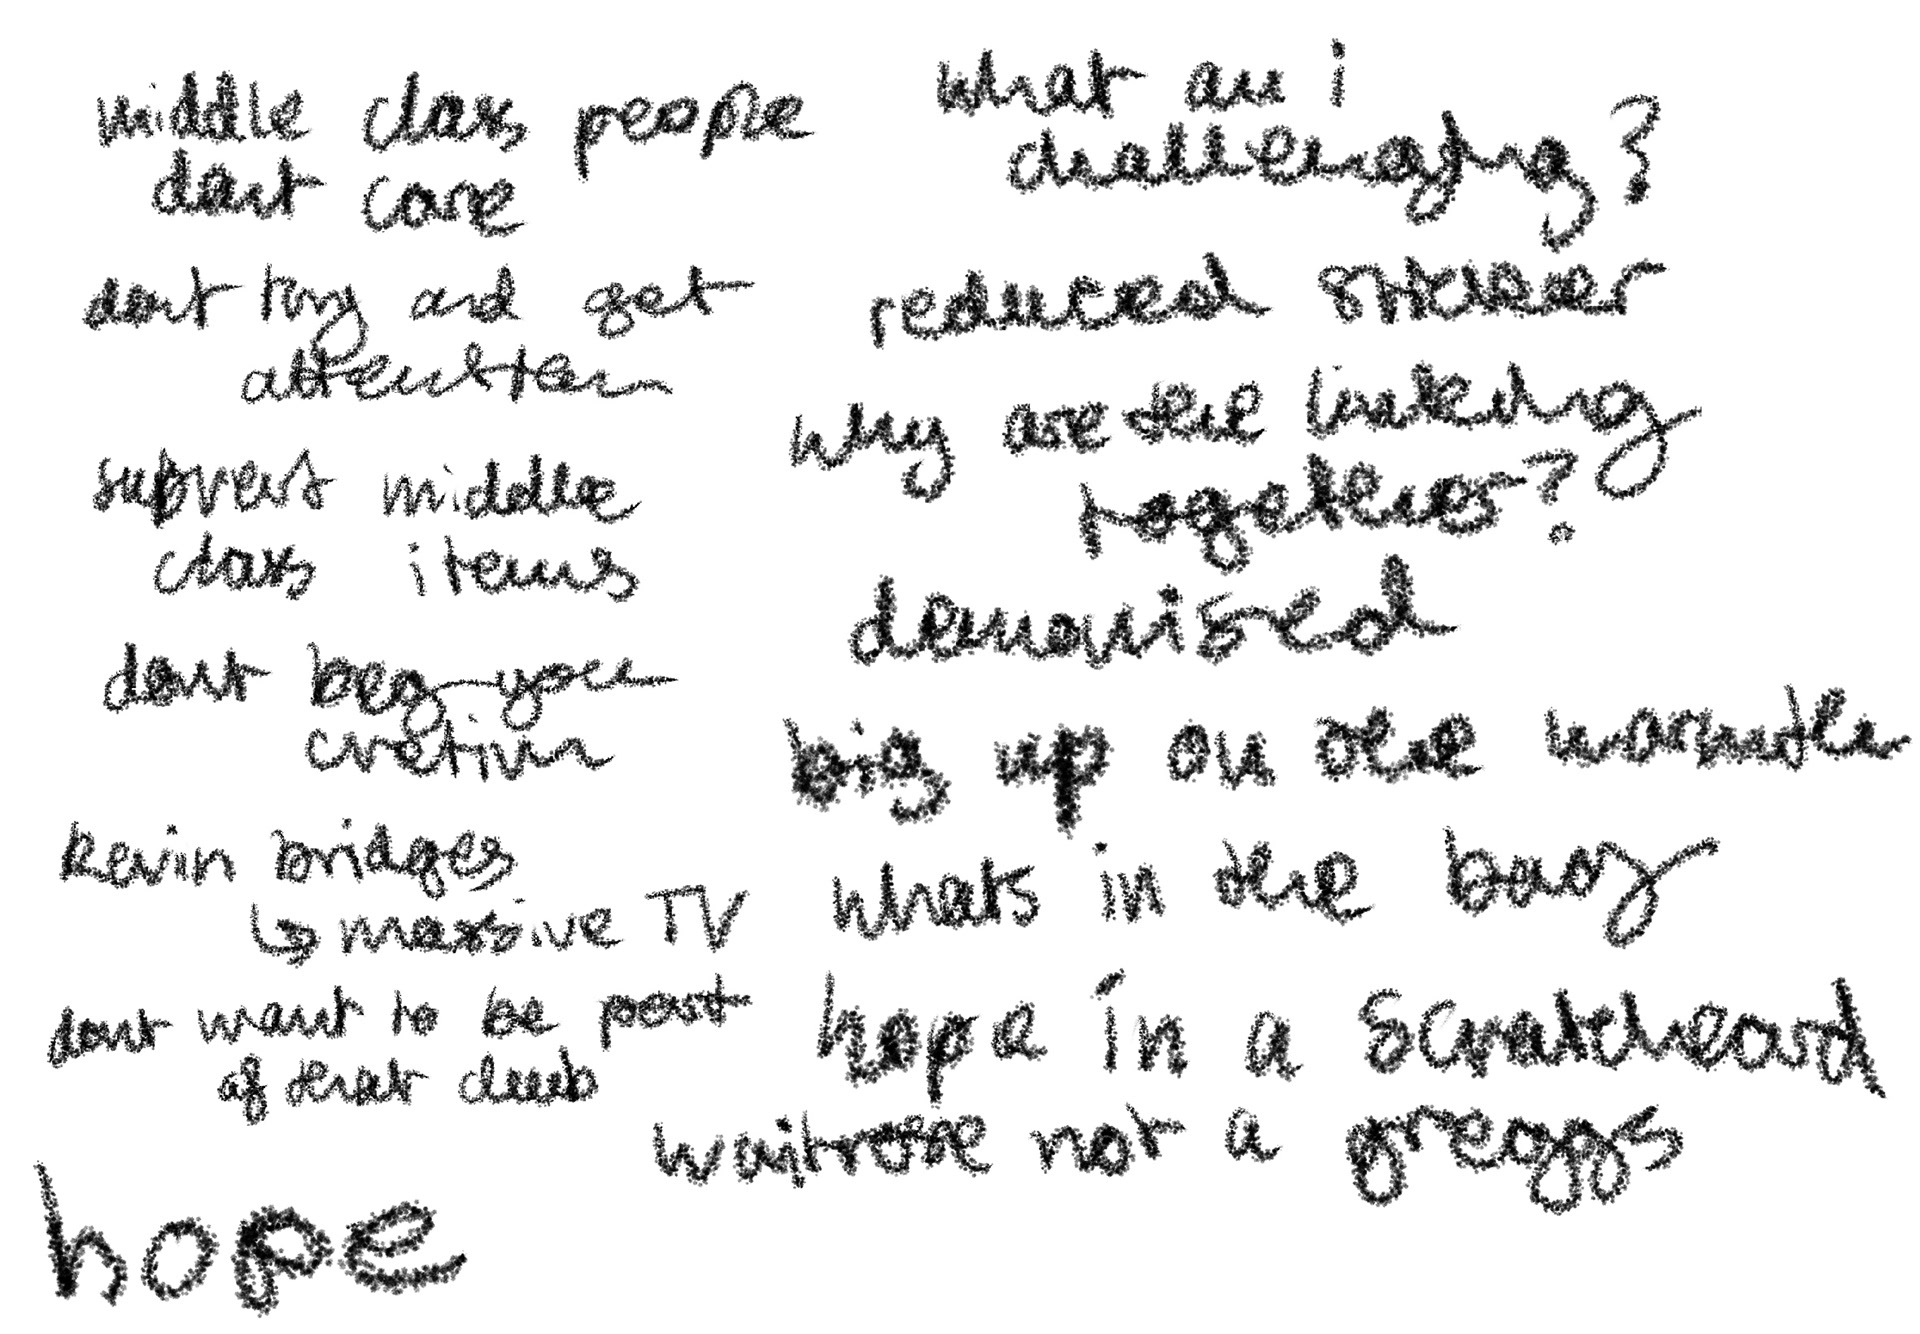 middle class people
dont care
dont try and get
attention
subvert middle
class items
dont beg you
cretin
kevin bridges
↳ massive TV
dont want to be part
of that club
hope
what am i
challenging?
reduced sticker
why are the linking
together?
demonised
big up on the
whats in the bag
hope in a scratchcard
waitrose not a greggs